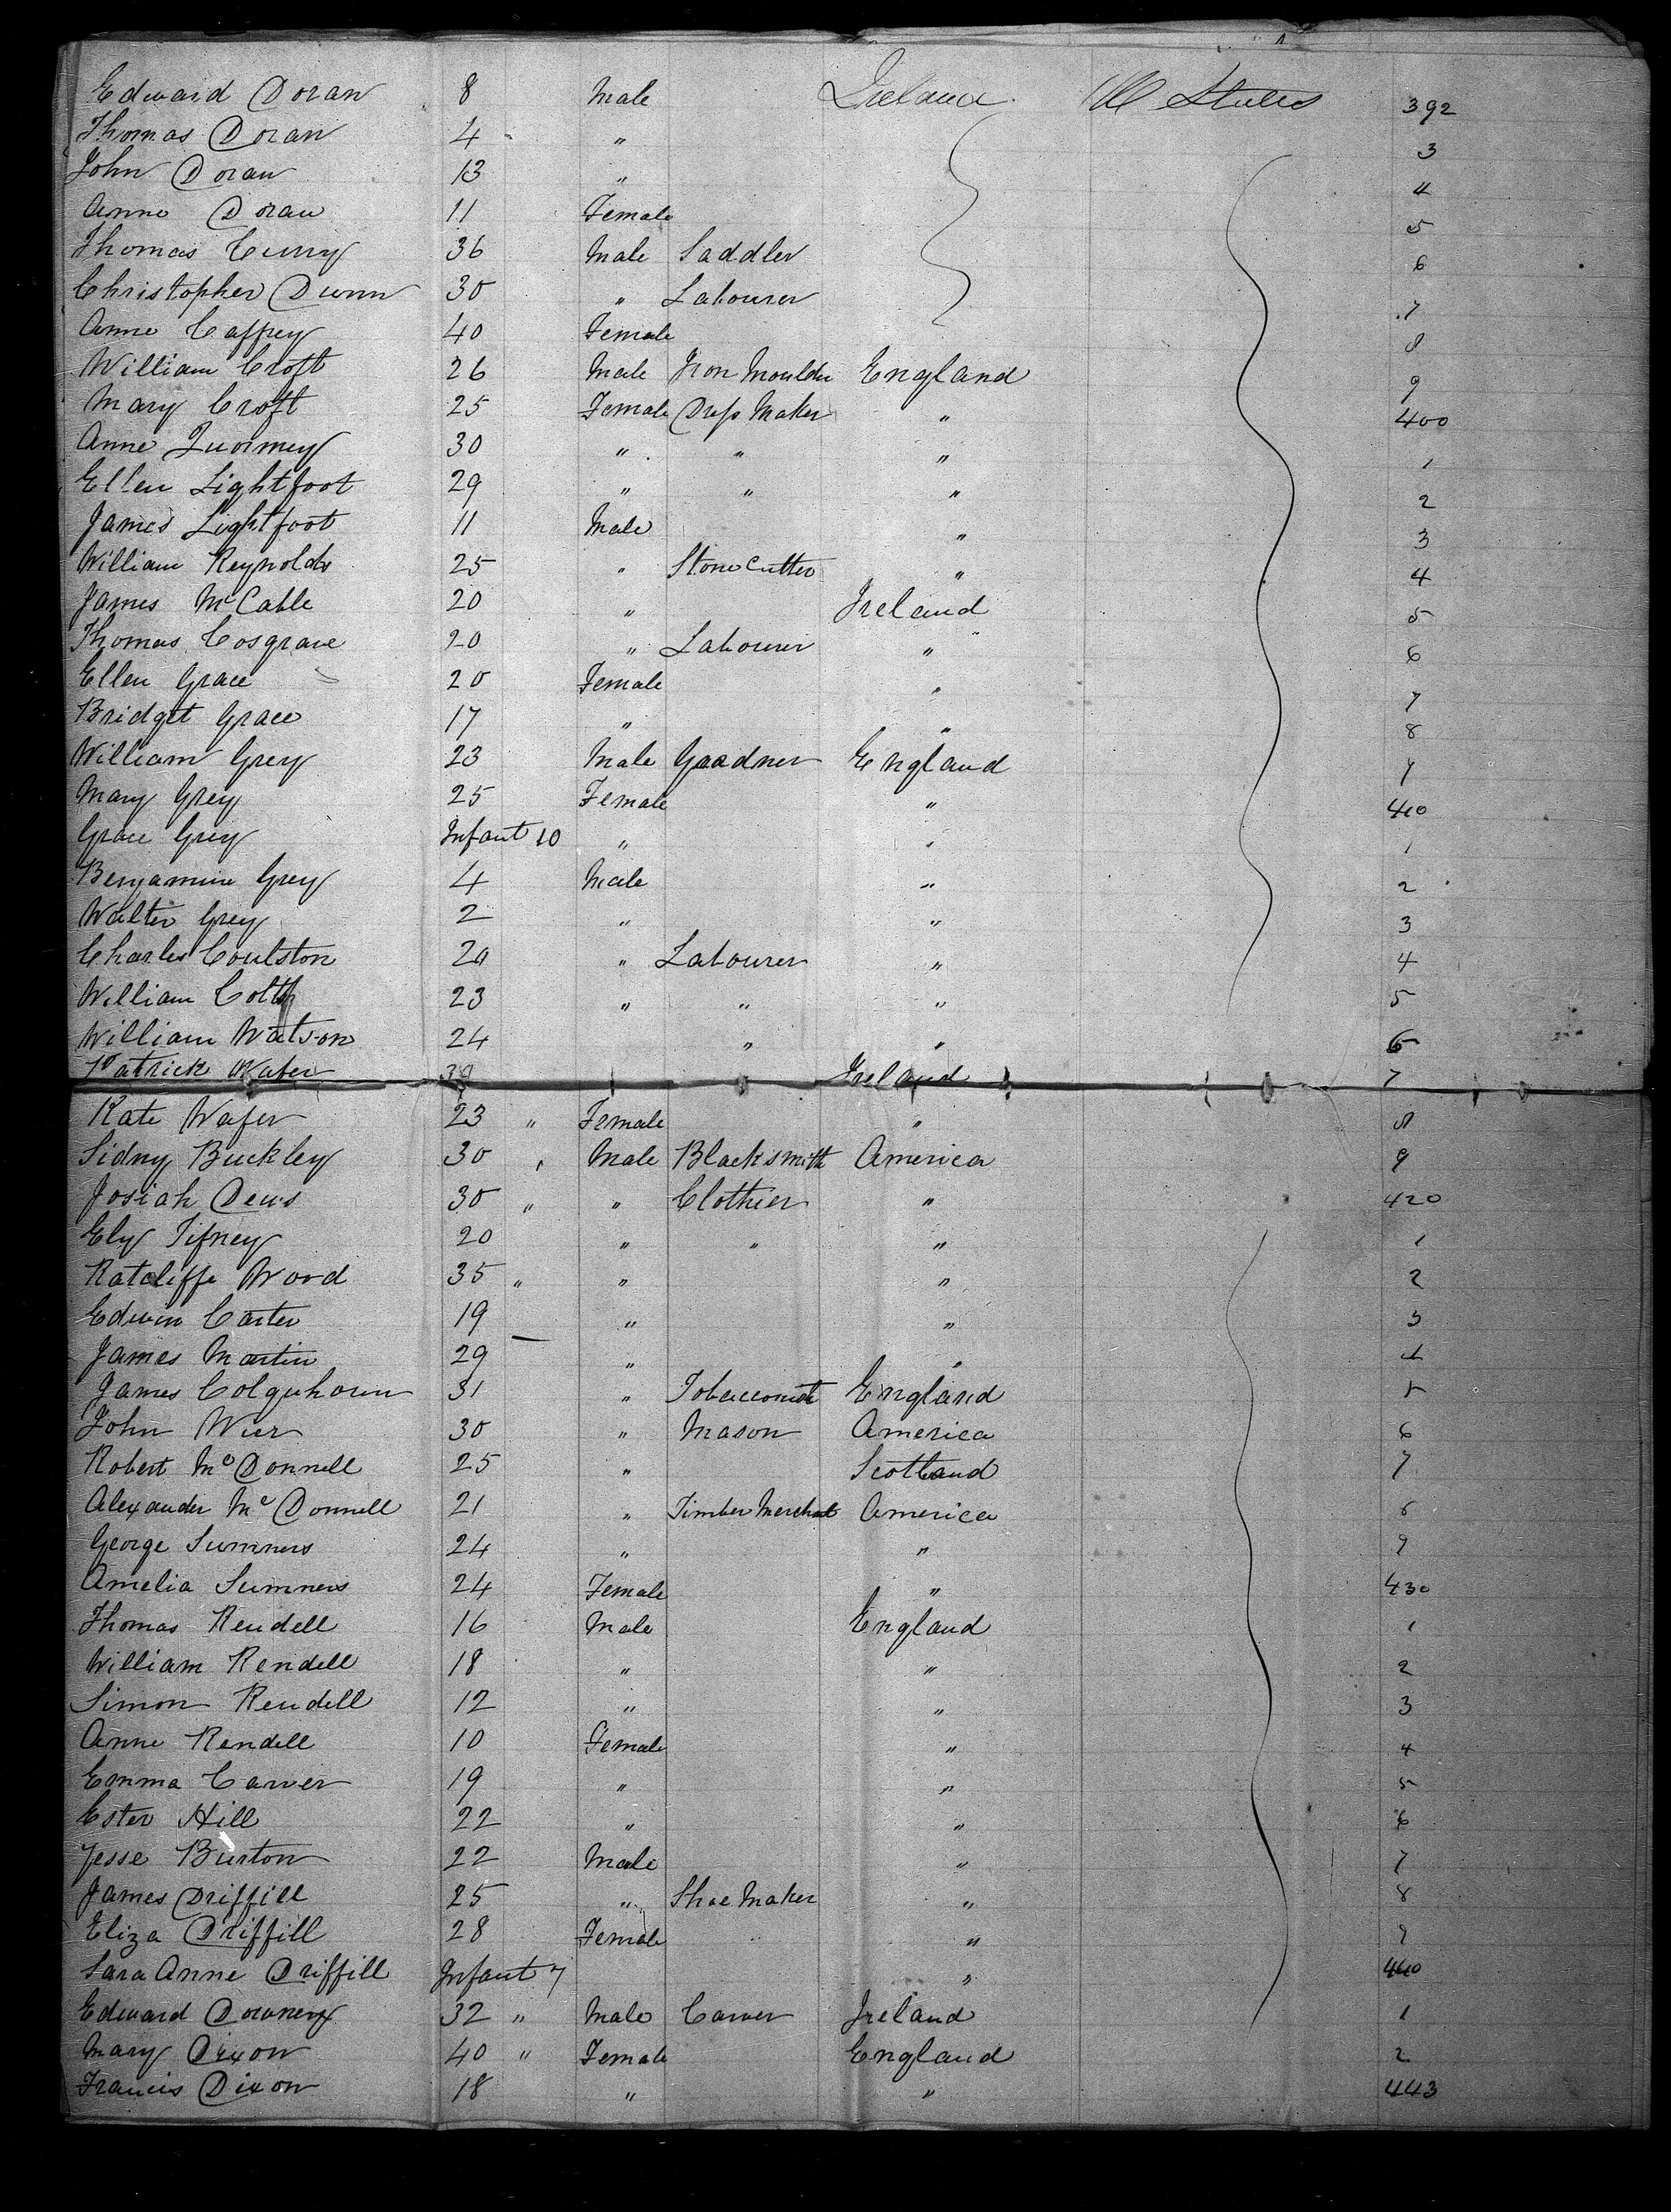 Edward Doran 8 Male Ireland U States 392
Thomas Doran 4 " 3
John Doran 13 " 4
Anne Doran 11 Female 5
Thomas Curry 36 Male Saddler 6
Christopher Dunn 30 " Labourer 7
Anne Caffrey 40 Female 8
William Croft 26 Male Iron Moulder England 9
Mary Croft 25 Female Dress Maker " 400
Anne 30 " " " 1
Ellen Lightfoot 29 " " " 2
James Lightfoot 11 Male " 3
William Reynolds 25 " Stone Cutter " 4
James McCable 20 " Ireland 5
Thomas Cosgrave 20 " Labourer " 6
Ellen Grace 20 Female " 7
Bridget Grace 17 " " 8
William Grey 23 Male Gaadner England 9
Mary Grey 25 Female " 410
Grace Grey Infant 10 " " 1
Benjamine Grey 4 Male " 2
Walter Grey 2 " " 3
Charles Coulston 20 " Labourer " 4
William 23 " " " 5
William Watson 24 " " 6
Patrick Wafer 30 Ireland 7
Kate Wafer 23 " Female " 8
Sidny Buckley 30 " Male Blacksmith America 9
Josiah Dews 30 " " Clothier " 420
Ely Tifney 20 " " " 1
Ratcliffe Wood 35 " " " 2
Edwin Carter 19 " " 3
James Martin 29 " " 4
James Colquhoun 31 " Tobacconist England 5
John Wier 30 " Mason America 6
Robert McDonnell 25 " Scotland 7
Alexander McDonnell 21 " Timber Merchat America 8
George Sumners 24 " " 9
Amelia Sumners 24 Female " 430
Thomas Rendell 16 Male England 1
William Rendell 18 " " 2
Simon Rendell 12 " " 3
Anne Rendell 10 Female " 4
Emma Carver 19 " " 5
Ester Hill 22 " " 6
Jesse Burton 22 Male " 7
James Driffill 25 " Shoe Maker " 8
Eliza Driffill 28 Female " 9
Sara Anne Driffill Infant 7 " 440
Edward Downery 32 " Male Carver Ireland 1
Mary Dixon 40 " Female England 2
Francis Dixon 18 " " 443